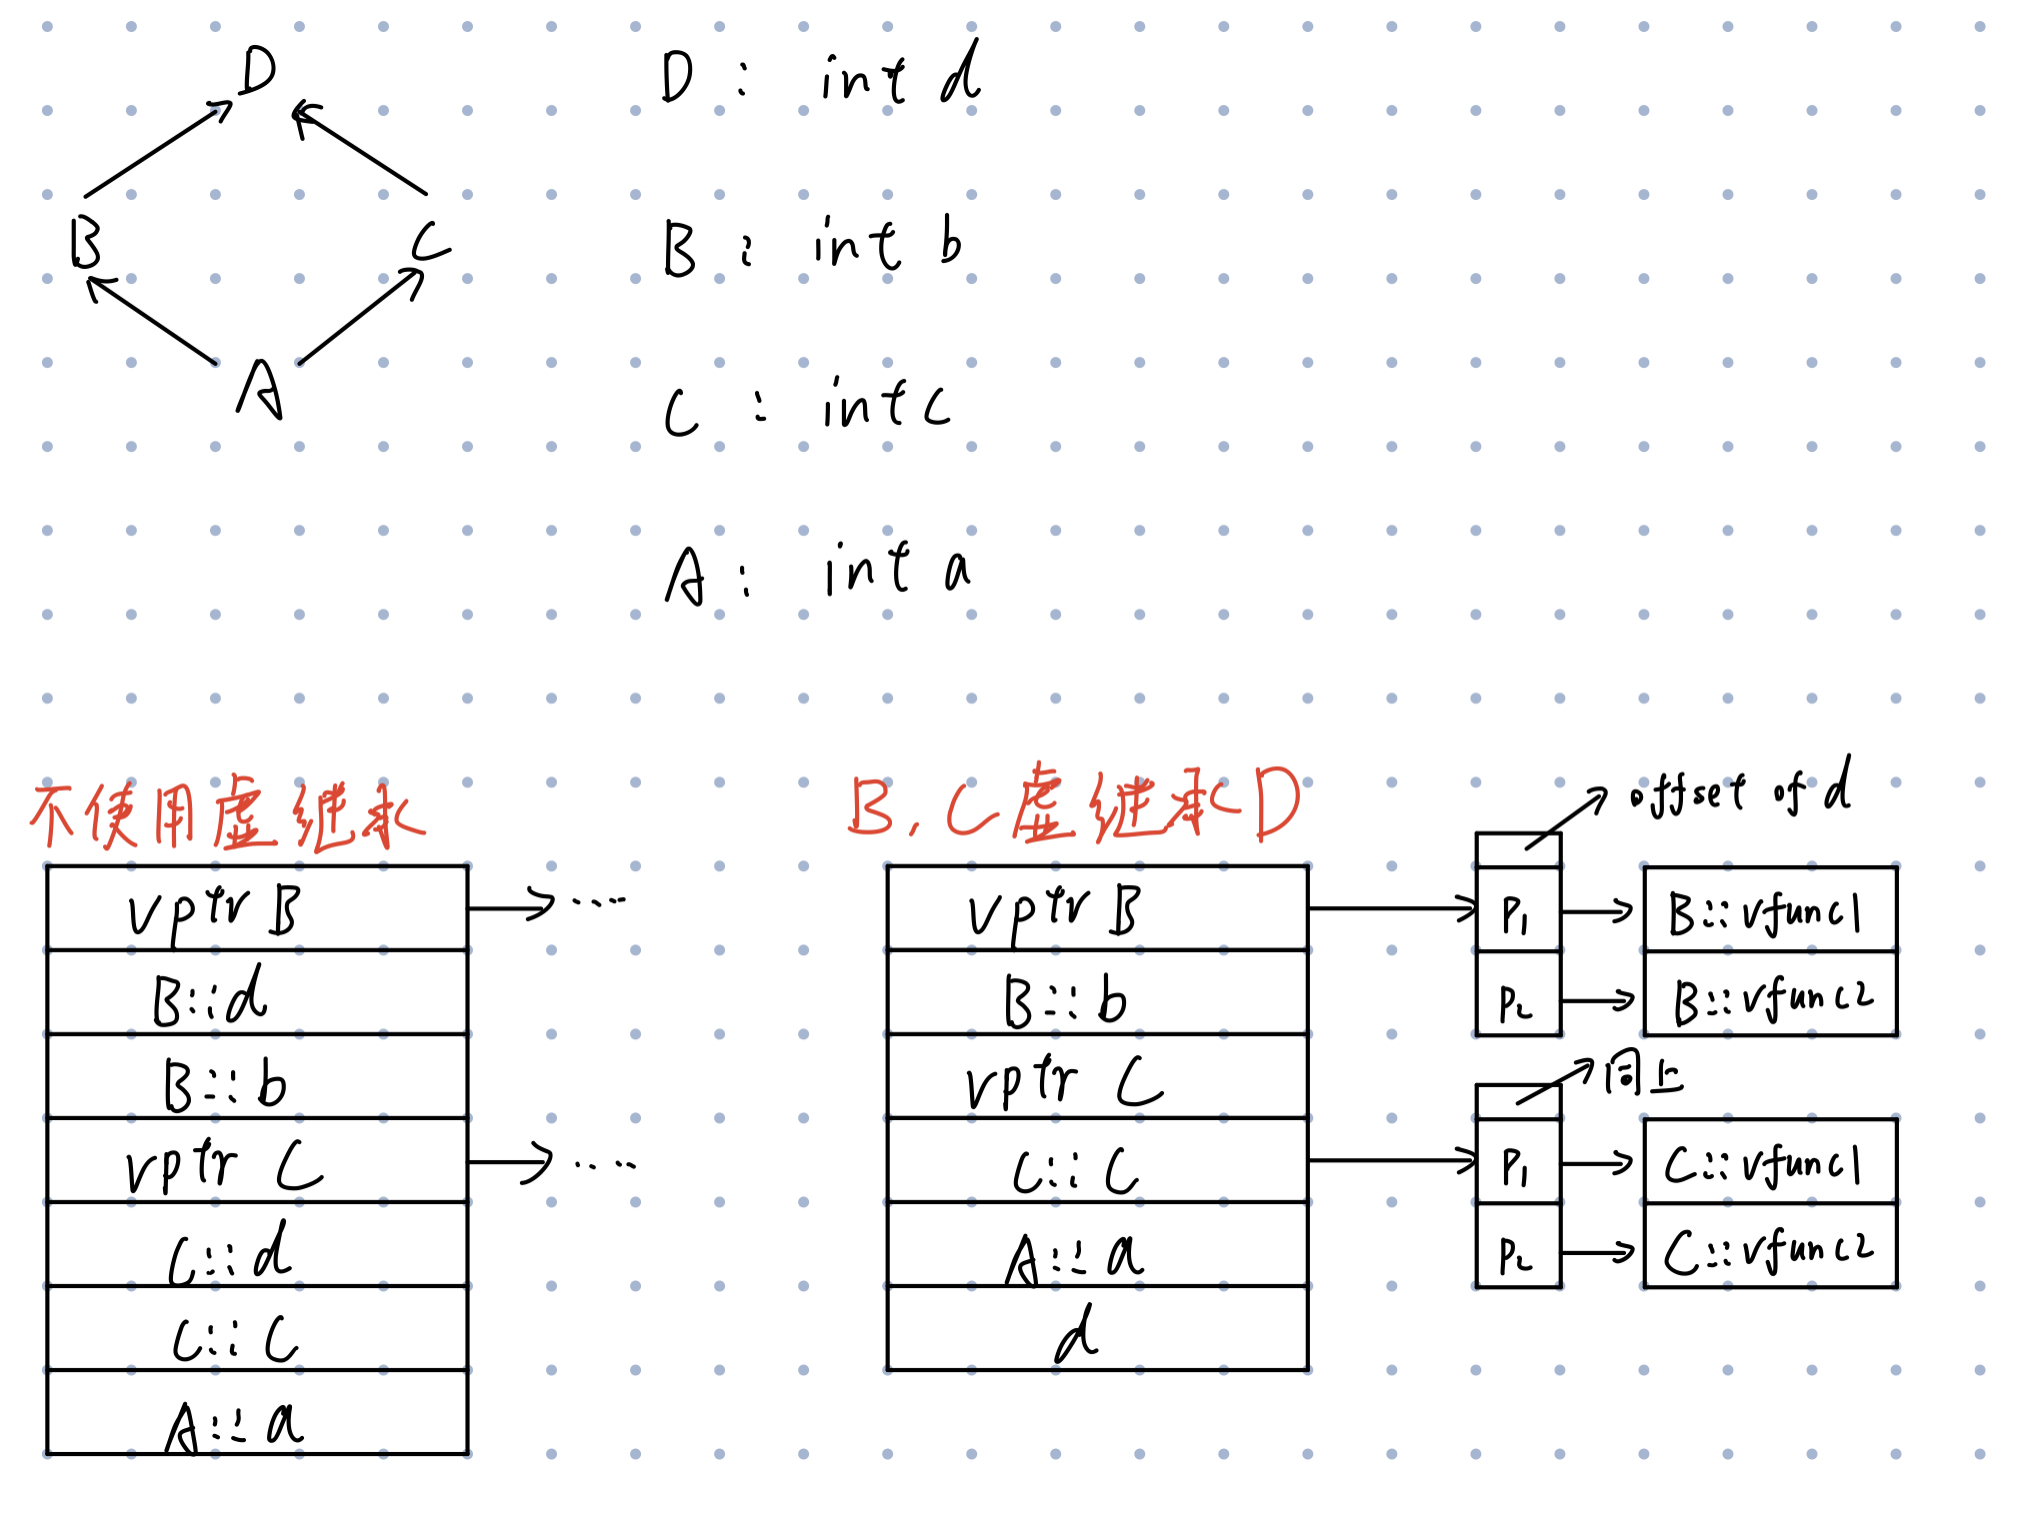 D
D : int d
B
C
B : int b
A
C : int c
A : int a
不使用虚继承
vptr B
....
B::d
B::b
vptr C
....
C::d
C::C
A::a
B, C虚继承D
vptr B
B::b
vptr C
C::C
A::a
d
offset of d
P1
B::vfunc1
P2
B::vfunc2
同上
P1
C::vfunc1
P2
C::vfunc2